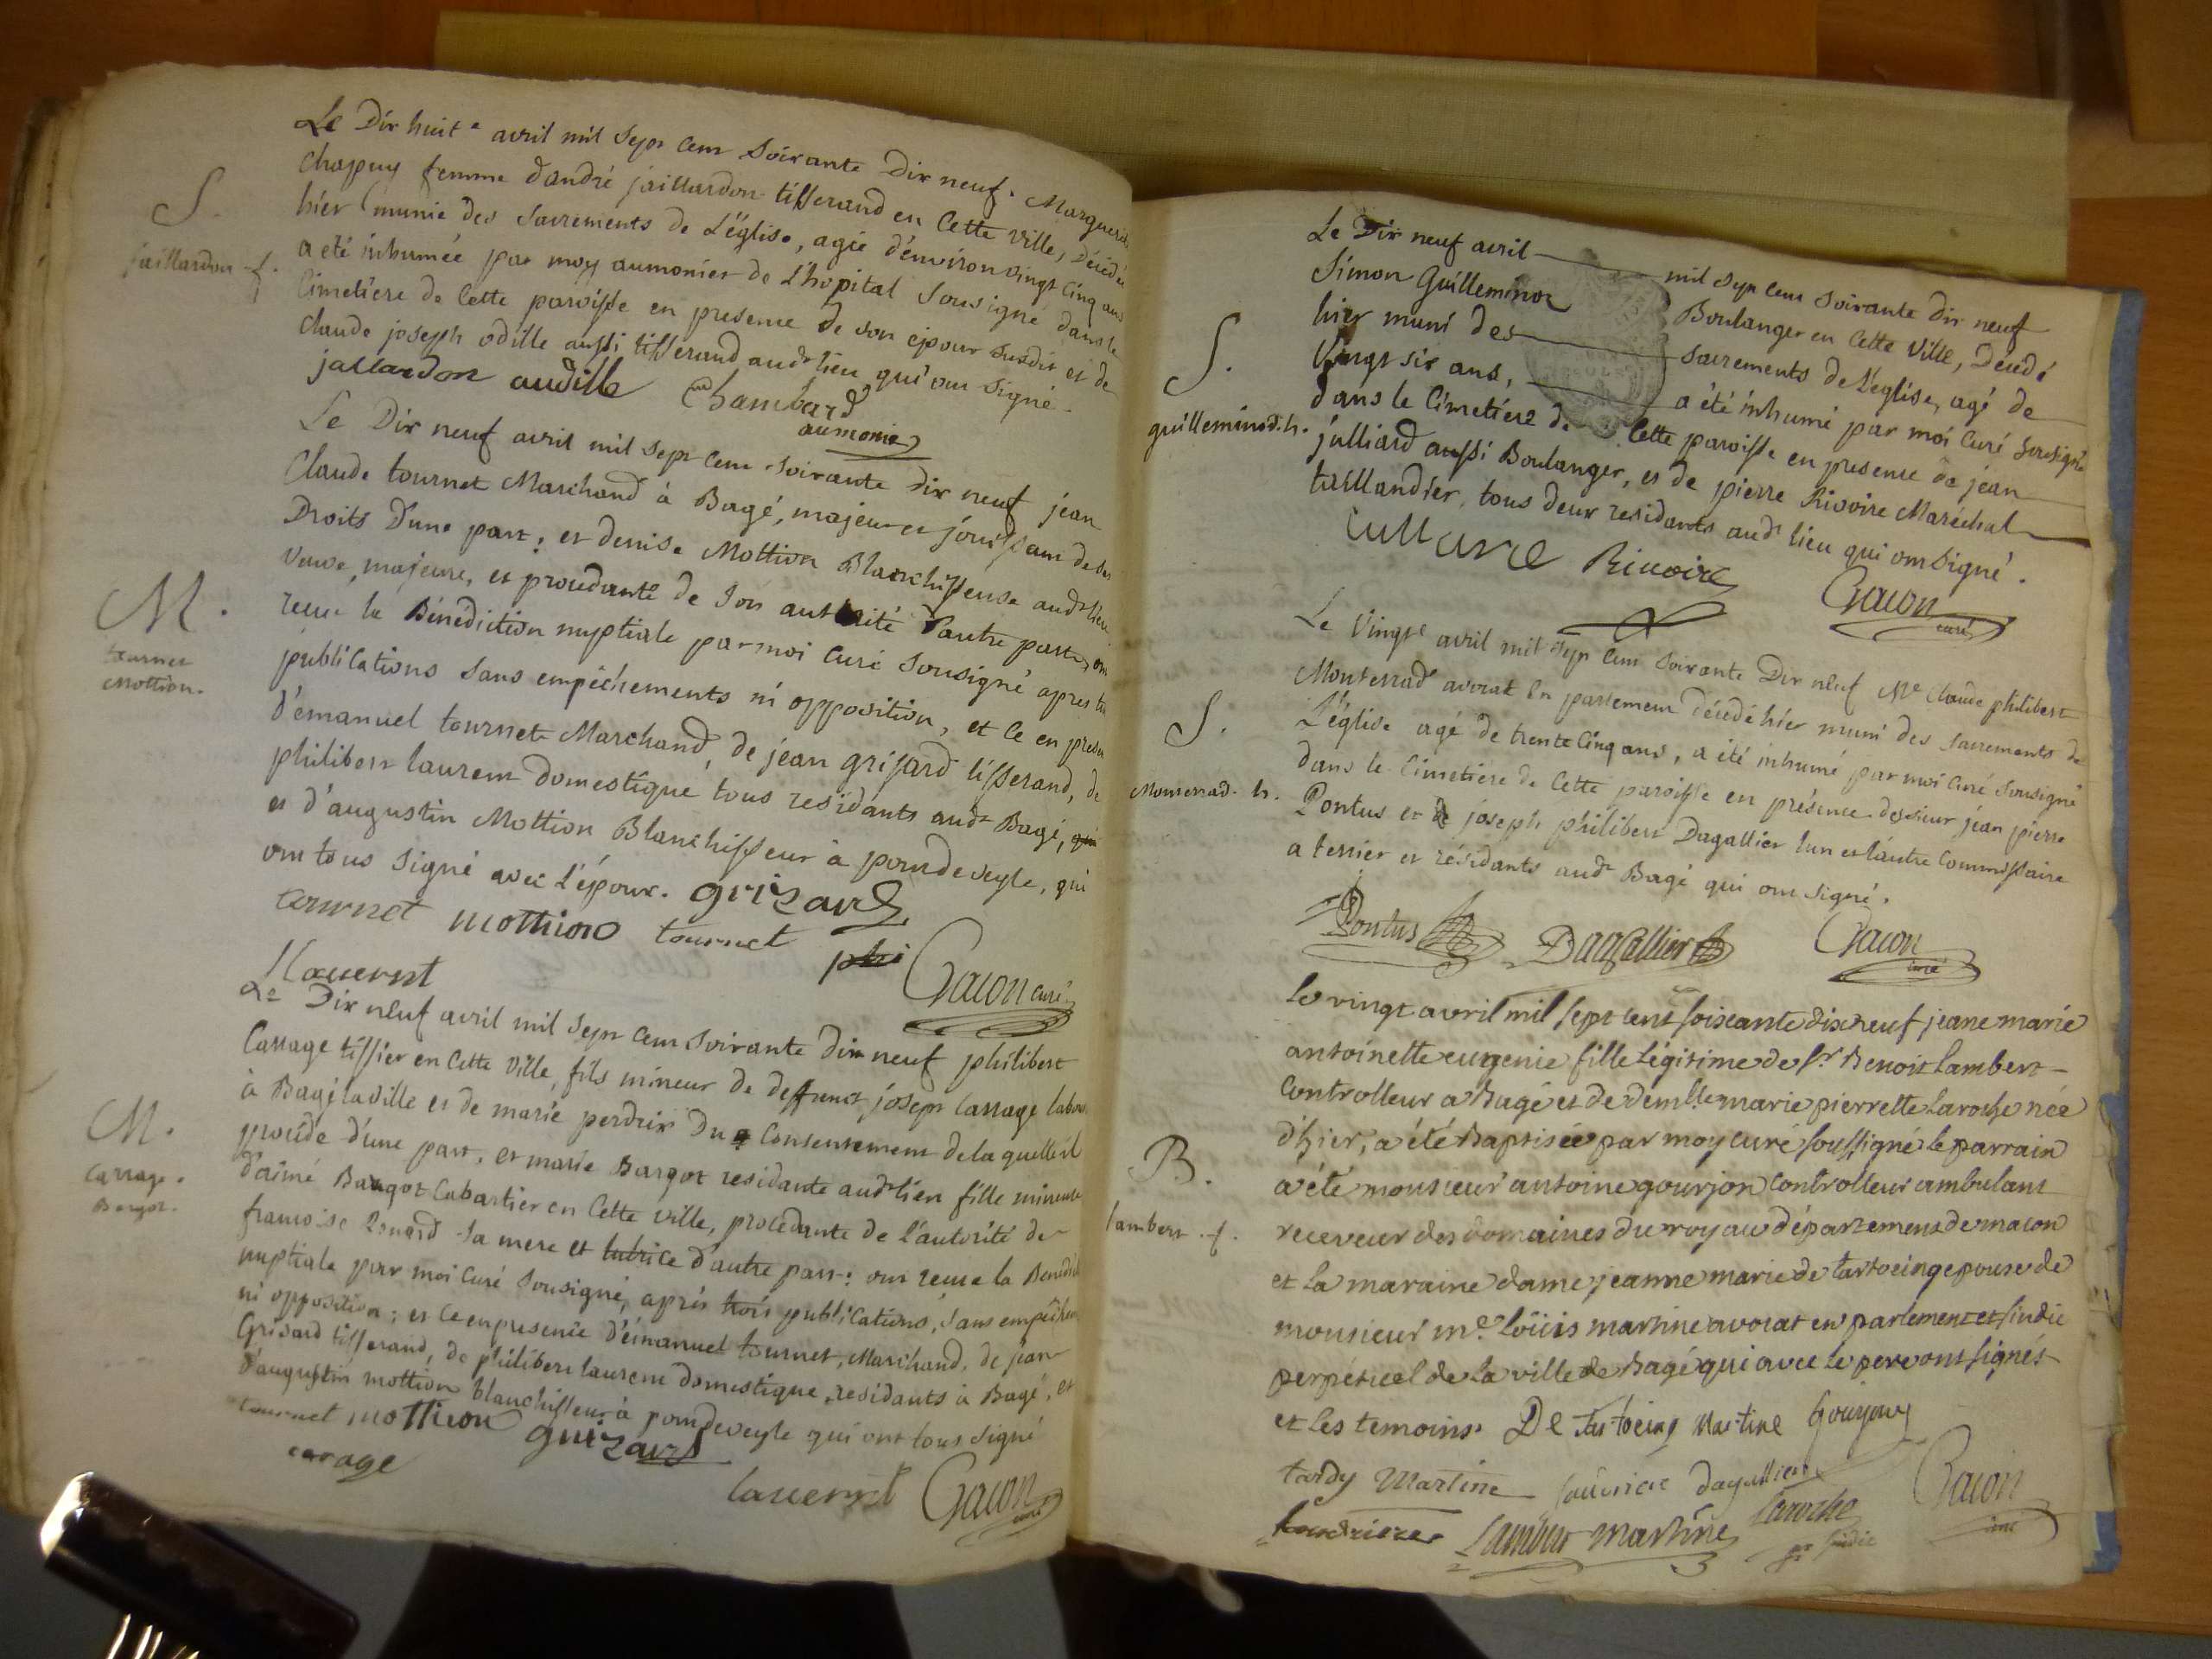 Le Dix huit e avril mil Sept Cent Soixante Dix neuf. Marguerite
Chapuy femme d'andré jaillardon tisserand en Cette ville, Décédée
hier munie des Sacrements de L'église, agée d'environ vingt Cinq ans
a eté inhumée par moy aumonier de L'hopital Sousigné dans le
Cimetiere de Cette paroisse en presence de son epoux susdit et de
Claude joseph odille aussi tisserand audt lieu qui ont signé.
S.
jaillardon f.
jallardon audille Chambard
aumonier
Le Dix neuf avril mil Sept Cent Soixante Dix neuf jean
Claude tournet Marchand à Bagé, majeur et jouissant de ses
Droits D'une part; et denise Mottion Blanchisseuse audt lieu
veuve, majeure, et procedante de son authorité d'autre part, ont
recu la Bénédiction nuptiale par moi Curé Sousigné apres trois
publications sans empêchements ni opposition, et Ce en presence
d'émanuel tournet Marchand, de jean grisard tisserand, de
philibert laurent Domestique tous residants audt Bagé, qui
et d'augustin Mottion Blanchisseur à pondeveyle, qui
ont tous Signé avec L'époux. grizard
M.
tournet
Mottion.
tournet mottion tournet phi
Llauernt Gacon curé
Le Dix neuf avril mil Sept Cent Soixante dix neuf philibert
Carrage tissier en Cette Ville, fils mineur de deffunct joseph Carrage labour
à Bagé la ville et de marie perdrix Du Consentement de la quelle il
procéde d'une part, et marie Bargot residante audt lieu fille mineure
d'aimé Bargot Cabartier en Cette ville, procédante de l'autorité de
francoise Renard Sa mere et tutrice d'autre part: ont recue la Bénédict
nuptiale par moi Curé Sousigné, après trois publications, sans empêchem
ni opposition; et Ce en presence d'émanuel tournet, Marchand, de jean
Grisard tisserand, de philibert laurent domestique residants à Bagé, et
d'augustin mottion blanchisseur à pondeveyle qui ont tous signé
M.
Carrage.
Bargot.
tournet mottion grizard
carage
lauernt Gacon
curé
Le Dix neuf avril mil Sept Cent Soixante dix neuf
Simon Guilleminot Boulanger en Cette Ville, Décédé
hier muni des Sacrements de L'église, agé de
Vingt six ans, a été inhumé par moi Curé Sousigné
dans le Cimetiére de Cette paroisse en presence de jean
julliard aussi Boulanger, et de pierre Rivoire Maréchal
taillandier, tous deux residants audt lieu qui ont Signé.
S.
guilleminod. h.
Rivoire Gacon
curé
Le Vingt e avril mil Sept Cent Soixante Dix neuf Me Claude philibert
Monterrad avocat en parlement décédé hier muni des Sacrements de
L'église agé de trente Cinq ans, a été inhumé par moi Curé Sousigné
dans le Cimetiére de Cette paroisse en présence des sieur jean pierre
Pontus et de joseph philibert Dagallier l'un et l'autre Commissaire
a terrier et résidants audt Bagé qui ont Signé.
S.
Monterrad. h.
Pontus Dagallier Gacon
curé
le vingt avril mil sept cent soixante dix neuf jeane marie
antoinette eugenie fille légitime de sr. Benoit Lambert
Controlleur a Bagé et de demlle. marie pierrette Laroche née
d'hier, a été Baptisée par moy curé soussigné le parrain
a été monsieur antoine gourjon Controlleur ambulant
receveur des domaines du roy au département de macon
et la maraine dame jeanne marie de tartoeing epouse de
monsieur me. loüis martine avocat en parlement et sindic
perpétuel de la ville de Bagé qui avec le pere ont signés
et les temoins. De tartoeing Martine Gourjon
B.
lambert. f.
tardy Martine Dagallier Gacon
curé
Lambert martine Laroche
sindic